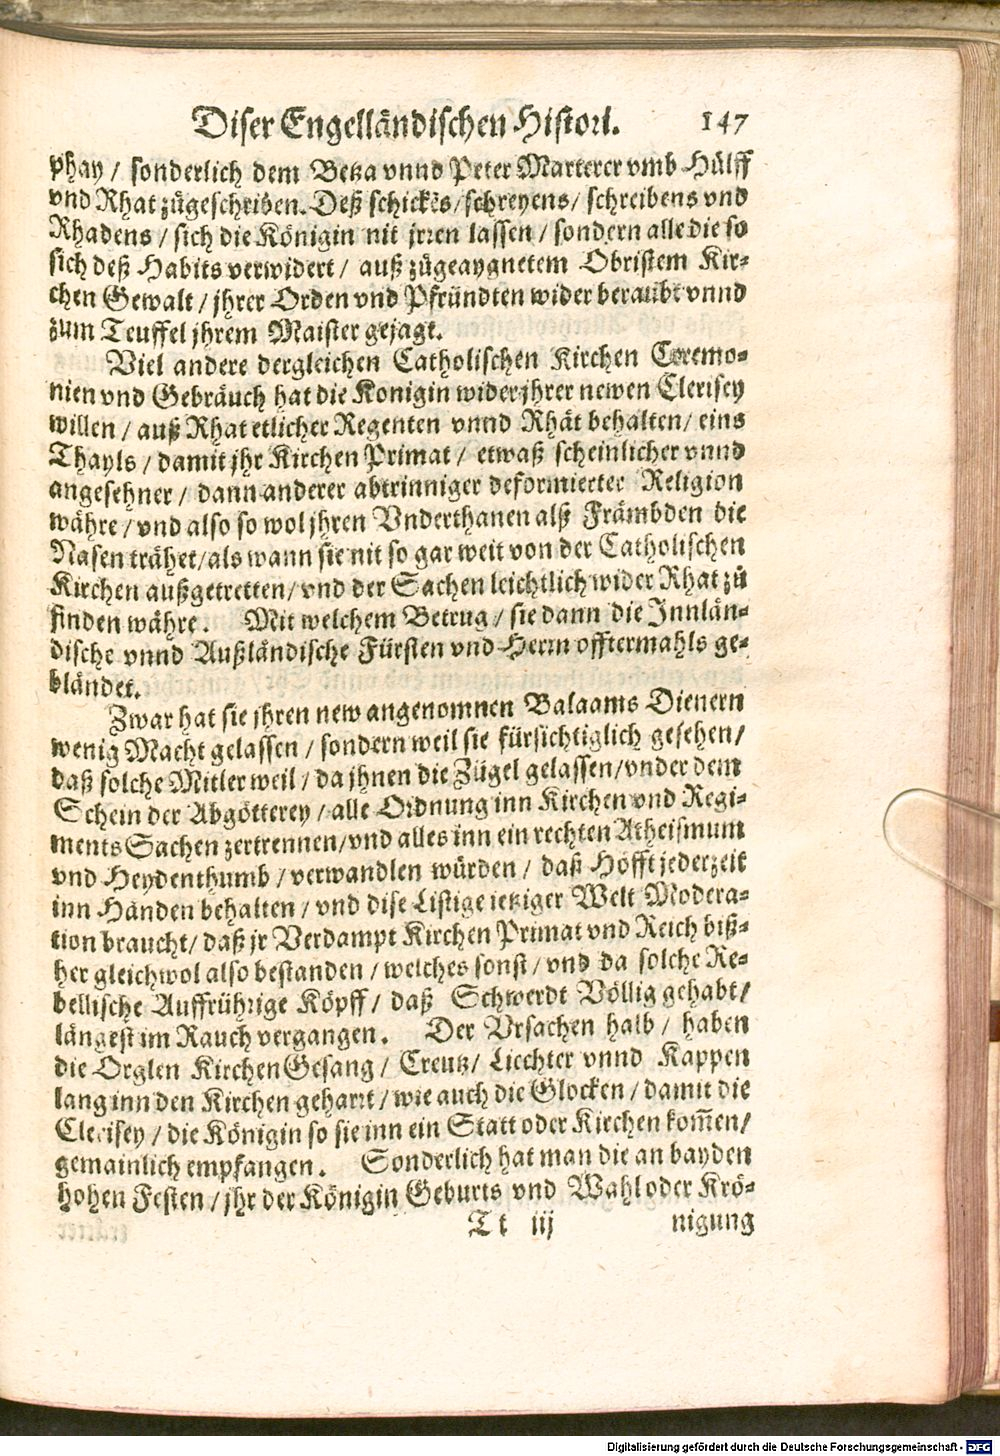 Diser Engelländischen Histori. 147
phay / sonderlich dem Betza vnnd Peter Marterer vmb Hülff
vnd Rhat zůgeschriben. Deß schickēs / schreyens / schreibens vnd
Rhadens / sich die Königin nit jrren lassen / sondern alle die so
sich deß Habits verwidert / auß zůgeaygnetem Obristem Kir⸗
chen Gewalt / jhrer Orden vnd Pfründten wider beraubt vnnd
zum Teuffel jhrem Maister gejagt.
Viel andere dergleichen Catholischen Kirchen Ceremo⸗
nien vnd Gebräuch hat die Konigin wider jhrer newen Clerisey
willen / auß Rhat etlicher Regenten vnnd Rhät behalten / eins
Thayls / damit jhr Kirchen Primat / etwaß scheinlicher vnnd
angesehner / dann anderer abtrinniger deformierter Religion
währe / vnd also so wol jhren Vnderthanen alß Främbden die
Nasen trähet / als wann sie nit so gar weit von der Catholischen
Kirchen außgetretten / vnd der Sachen leichtlich wider Rhat zů
finden währe. Mit welchem Betrug / sie dann die Innlän⸗
dische vnnd Außländische Fürsten vnd Herrn offtermahls ge⸗
bländet.
Zwar hat sie jhren new angenomnen Balaams Dienern
wenig Macht gelassen / sondern weil sie fürsichtiglich gesehen /
daß solche Mitler weil / da jhnen die Zügel gelassen / vnder dem
Schein der Abgötterey / alle Ordnung inn Kirchen vnd Regi⸗
ments Sachen zertrennen / vnd alles inn ein rechten Atheismum
vnd Heydenthumb / verwandlen würden / daß Höfft jederzeit
inn Händen behalten / vnd dise Listige ietziger Welt Modera⸗
tion braucht / daß jr Verdampt Kirchen Primat vnd Reich biß⸗
her gleichwol also bestanden / welches sonst / vnd da solche Re⸗
bellische Auffrührige Köpff / daß Schwerdt Völlig gehabt /
längest im Rauch vergangen. Der Vrsachen halb / haben
die Orglen Kirchen Gesang / Creutz / Liechter vnnd Kappen
lang inn den Kirchen geharrt / wie auch die Glocken / damit die
Clerisey / die Königin so sie inn ein Statt oder Kirchen kom̃en /
gemainlich empfangen. Sonderlich hat man die an bayden
hohen Festen / jhr der Königin Geburts vnd Wahl oder Krö⸗
Tt iij nigung
Digitalisierung gefördert durch die Deutsche Forschungsgemeinschaft - DFG